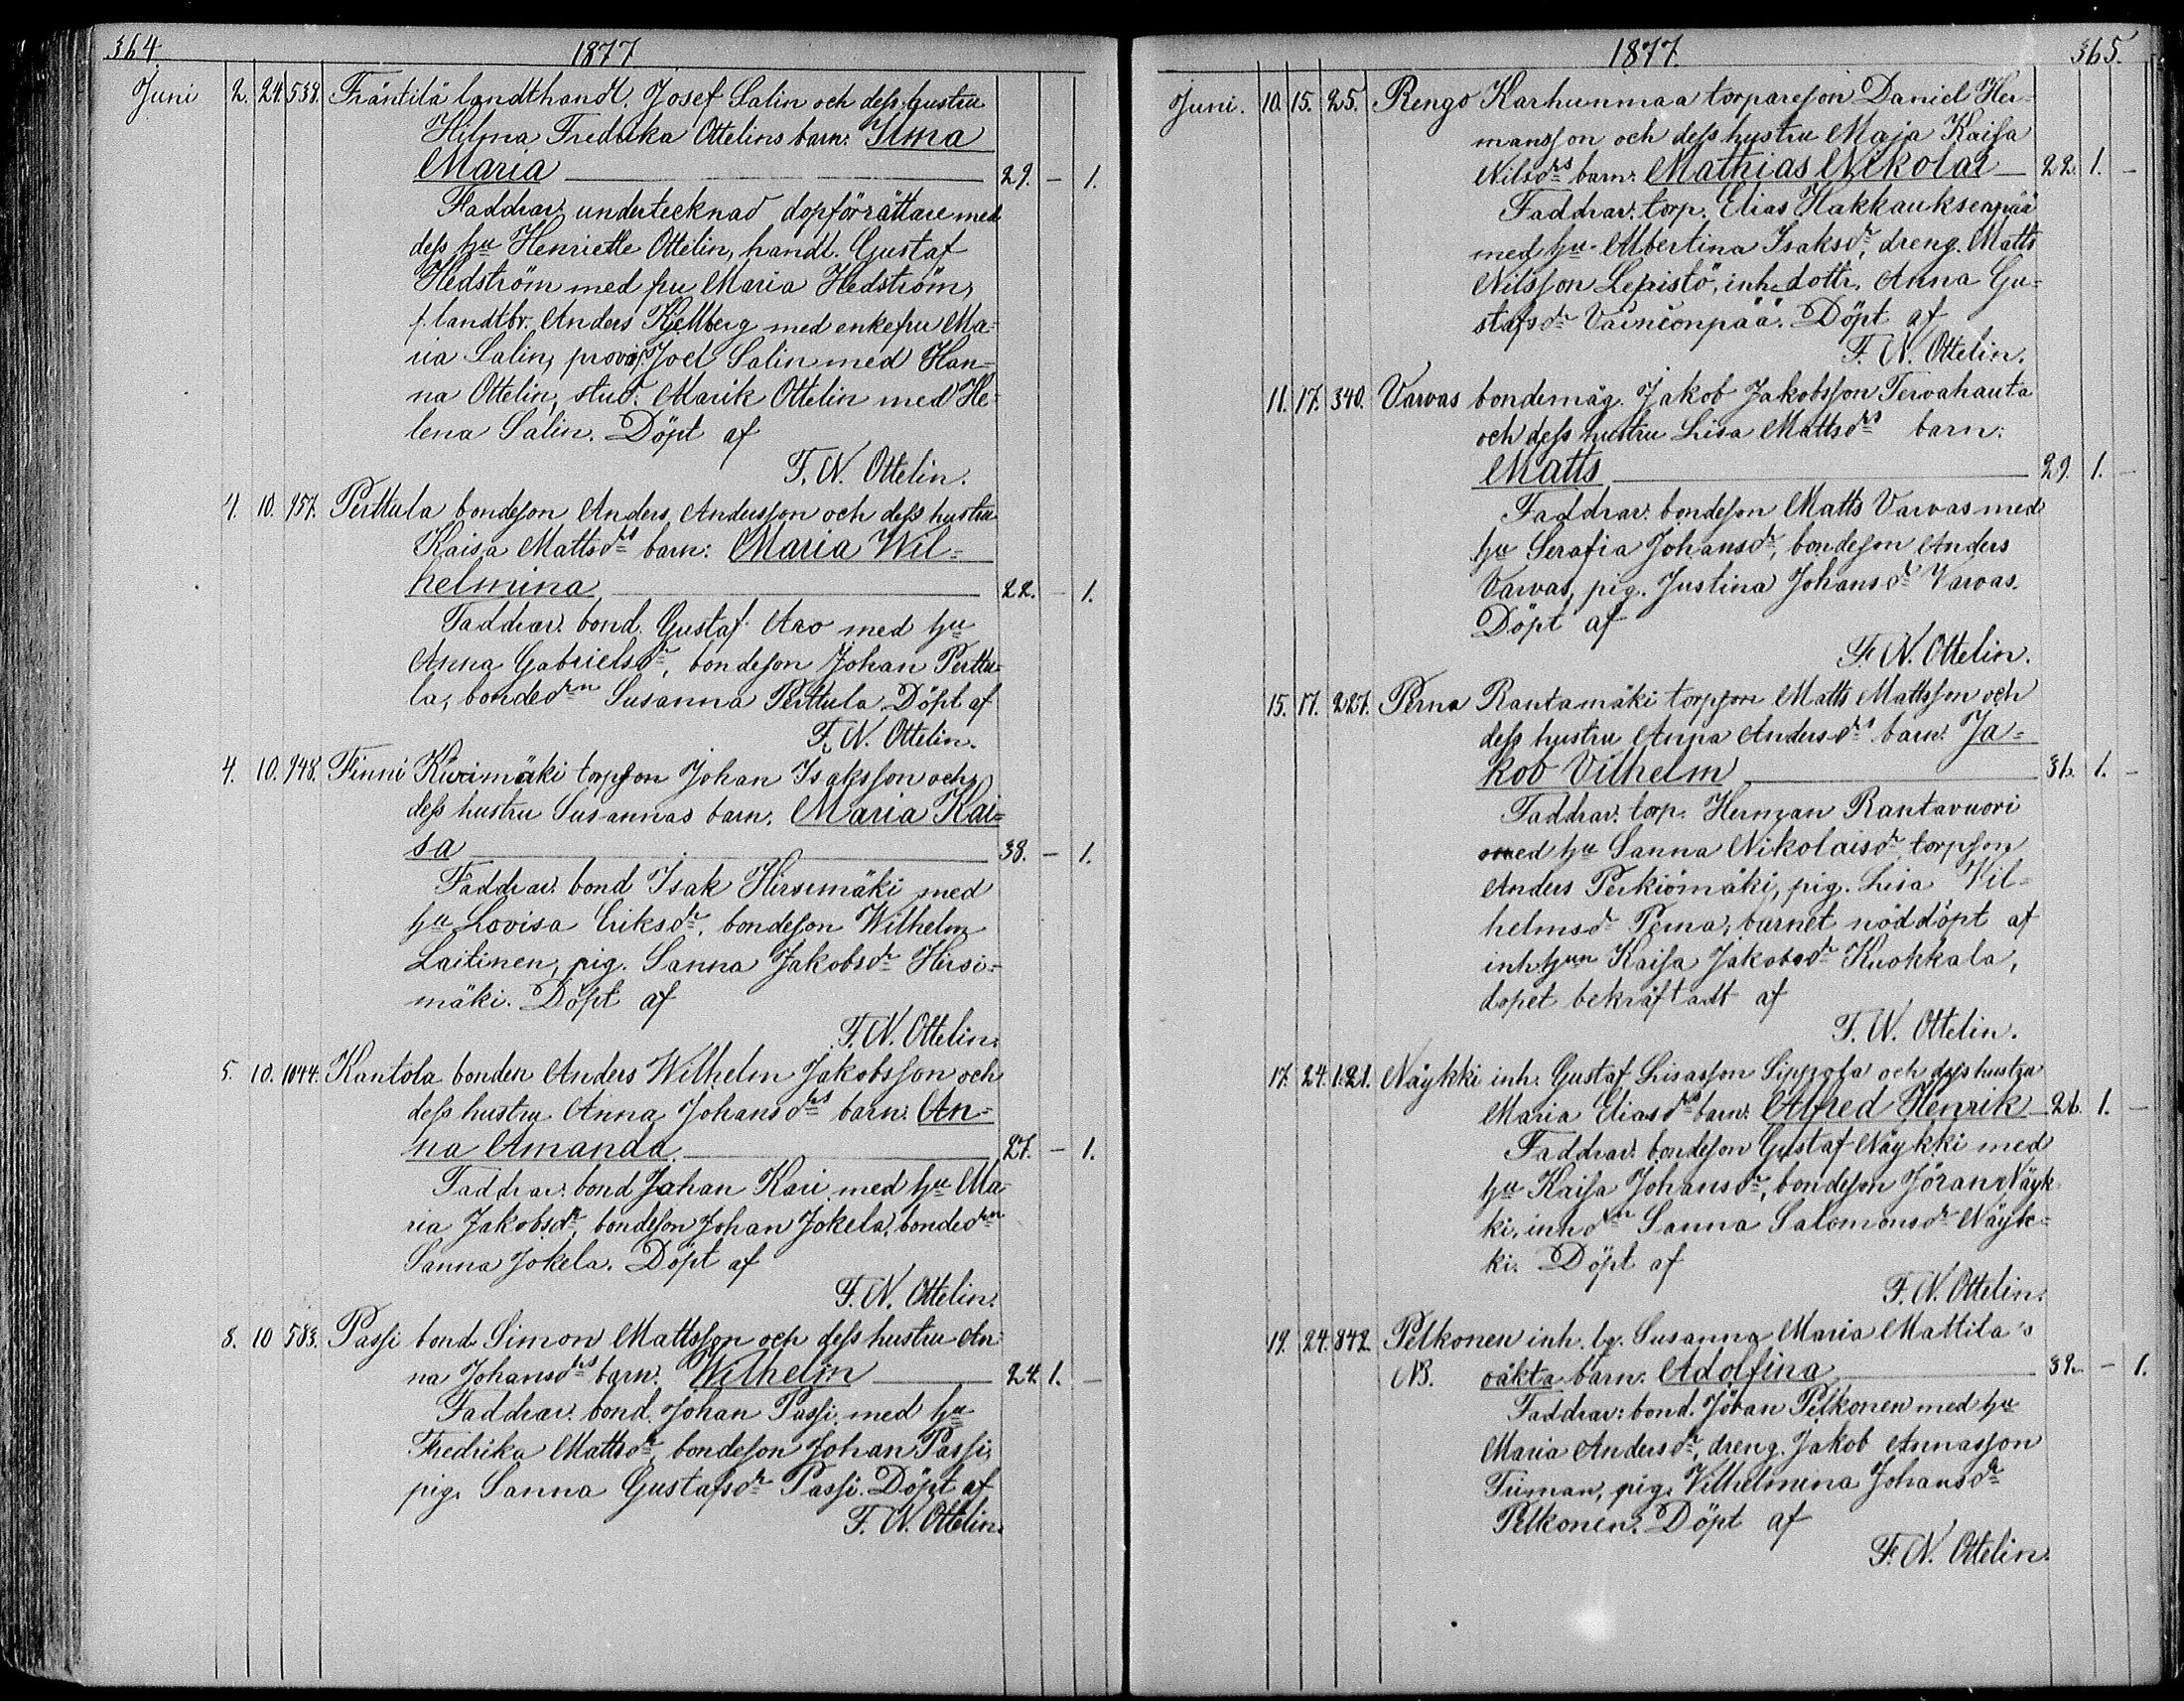 364. 1877
Juni 2. 24. 538. Fräntilä landthandl. Josef Salin och dess hustru
Hilma Fredrika Ottelins barn: Ilma
Maria 29. – 1.
Faddrar: undertecknad dopförrättare med
dess hu Henriette Ottelin, handl. Gustaf
Hedström med fru Maria Hedström,
f. landtbr. Anders Kjellberg med enkefru Ma=
ria Salin, provis. Joel Salin med Han=
na Ottelin, stud. Marik Ottelin med He=
lena Salin. Döpt af
F. N. Ottelin.
4. 10. 957. Perttula bondeson Anders Andersson och dess hustru
Kaisa Mattsdrs barn: Maria Wil=
helmina 22. – 1.
Faddrar: bond. Gustaf Aro med hu
Anna Gabrielsdr, bondeson Johan Perttu=
la, bondedrn Susanna Perttula. Döpt af
F. N. Ottelin.
4. 10. 948. Finni Kurimäki torpson Johan Isaksson och
dess hustru Susannas barn: Maria Kai=
sa 38. – 1.
Faddrar: bond Isak Hirsimäki med
hu Lovisa Eriksdr, bondeson Wilhelm
Laitinen, pig. Sanna Jakobsdr Hirsi=
mäki. Döpt af
F. N. Ottelin.
5. 10. 1044. Kantola bonden Anders Wilhelm Jakobsson och
dess hustru Anna Johansdrs barn: An=
na Amanda 27. – 1.
Faddrar: bond Johan Kari med hu Ma=
ria Jakobsdr, bondeson Johan Jokela, bondedrn
Sanna Jokela. Döpt af
F. N. Ottelin.
8. 10 583. Passi bond. Simon Mattsson och dess hustru An=
na Johansdrs barn: Wilhelm 24. 1. –
Faddrar: bond. Johan Passi med hu
Fredrika Mattsdr, bondeson Johan Passi,
pig. Sanna Gustafsdr Passi. Döpt af
F. N. Ottelin.
1877. 365.
Juni. 10. 15. 25. Rengo Karhunmaa torpareson Daniel Her=
mansson och dess hustru Maja Kaisa
Nilsdrs barn: Mathias Nikolai 22. 1. –
Faddrar: torp. Elias Hakkauksenpää
med hu Albertina Isaksdr, dreng. Matts
Nilsson Lepistö, inh. dottr. Anna Gu=
stafsdr Väinionpää. Döpt af
F. N. Ottelin.
11. 17. 340. Varvas bondemåg. Jakob Jakobsson Tervahauta
och dess hustru Lisa Mattsdrs barn:
Matts 29. 1. –
Faddrar: bondeson Matts Varvas med
hu Serafia Johansdr, bondeson Anders
Varvas, pig. Justina Johansdr Varvas.
Döpt af
F. N. Ottelin.
15. 17. 227. Perna Rantamäki torpson Matts Mattsson och
dess hustru Anna Andersdrs barn: Ja=
kob Vilhelm 36. 1. –
Faddrar: torp. Herman Rantavuori
med hu Sanna Nikolaisdr torpson
Anders Perkiömäki, pig. Lisa Vil=
helmsdr Perna, barnet nöddöpt af
inh hun Kaisa Jakobsdr Kuokkala,
dopet bekräftadt af
F. N. Ottelin.
17. 24. 121. Näykki inh. Gustaf Lisasson Sippola och dess hustru
Maria Eliasdrs barn: Alfred Henrik 26. 1. –
Faddrar: bondeson Gustaf Näykki med
hu Kaisa Johansdr, bondeson Jöran Näyk
ki, inh drn Sanna Salomonsdr Näyk=
ki. Döpt af
F. N. Ottelin.
19. 24. 842. Pelkonen inh. lg. Susanna Maria Mattila's
NB. oäkta barn: Adolfina 32. – 1.
Faddrar: bond. Jöran Pelkonen med hu
Maria Andersdr, dreng. Jakob Annasson
Tiiman, pig. Vilhelmina Johansdr
Pelkonen. Döpt af
F. N. Ottelin.